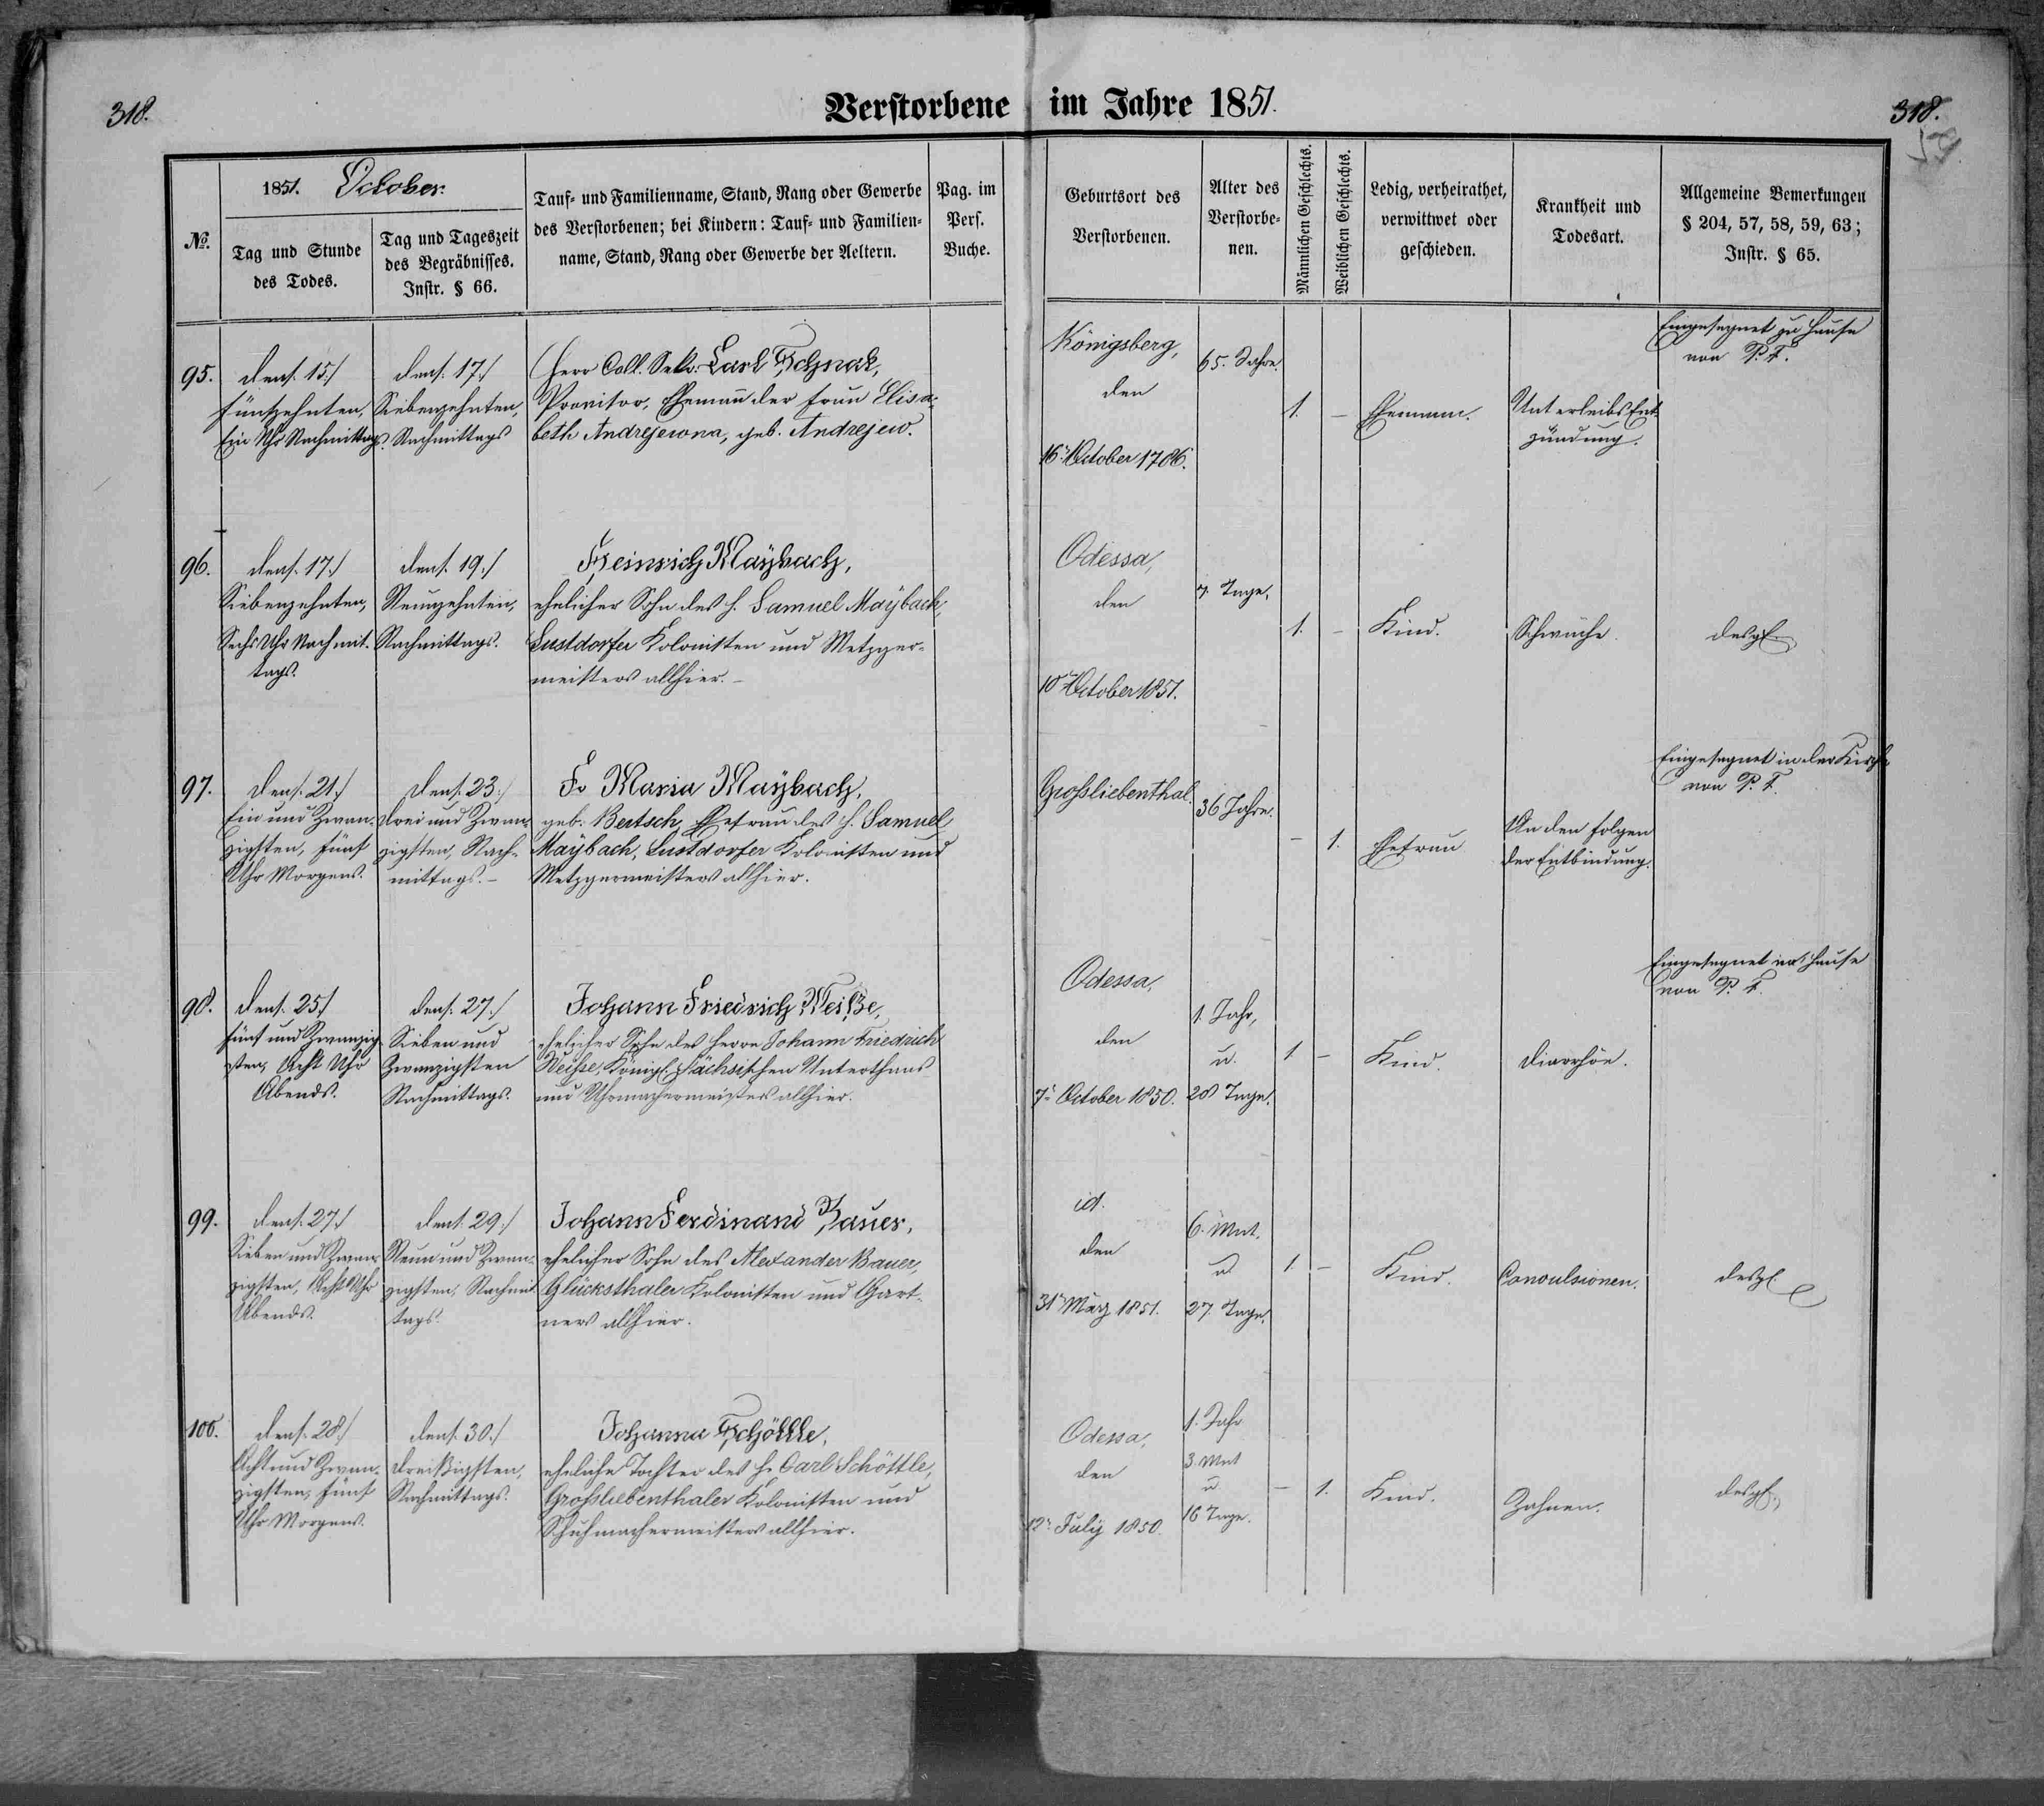 318.
Verstorbene im Jahre 1851.
318.
1851. October.
№.
Tag und Stunde
des Todes.
Tag und Tageszeit
des Begräbnisses.
Instr. § 66.
Tauf- und Familienname, Stand, Rang oder Gewerbe
des Verstorbenen; bei Kindern: Tauf- und Familien-
name, Stand, Rang oder Gewerbe der Aeltern.
Pag. im
Pers.
Buche.
Geburtsort des
Verstorbenen.
Alter des
Verstorbe-
nen.
Männlichen Geschlechts.
Weiblichen Geschlechts.
Ledig, verheirathet,
verwittwet oder
geschieden.
Krankheit und
Todesart.
Allgemeine Bemerkungen
§ 204, 57, 58, 59, 63;
Instr. § 65.
95.
den /. 15 /.
fünfzehnten,
Ein Uhr Nachmittags.
den /. 17 /.
Siebenzehnten,
Nachmittags
Herr Coll. Sekr. Carl
Provisor, Ehemann der Frau Elisa-
beth Andrejewna, geb. Andrejew.
Königsberg,
den
16. October 1786.
65. Jahre.
1. –
Ehemann.
Unterleibs Ent
zündung.
Eingesegnet zu Hause
von P. F.
96.
den /. 17 /.
Siebenzehnten,
Sechs Uhr Nachmit-
tags.
den /. 19 /.
Neunzehnten,
Nachmittags.
Heinrich Maÿbach,
ehelicher Sohn des H. Samuel Maÿbach,
Lustdorfer Kolonisten und Metzger-
meisters allhier. –
Odessa,
den
10. October 1851.
7. Tage.
1. –
Kind.
Schwäche.
desgl.
97.
den /. 21 /.
Ein und Zwan-
zigsten, fünf
Uhr Morgens.
den /. 23 /.
drei und Zwan-
zigsten, Nach-
mittags. –
Fr. Maria Maÿbach,
geb. Bertsch, Ehefrau des H. Samuel
Maÿbach, Lustdorfer Kolonisten und
Metzgermeisters allhier.
Grossliebenthal.
36 Jahre.
– 1.
Ehefrau
An den Folgen
der Entbindung.
Eingesegnet in der Kirche
von P. F.
98.
den /. 25 /.
fünf und Zwanzig-
sten, Acht Uhr
Abends.
den /. 27 /.
Sieben und
Zwanzigsten
Nachmittags.
Johann Friedrich Weisse,
ehelicher Sohn des Herrn Johann Friedrich
Weisse, Königl. Sächsischen Unterthans
und Uhrmachermeisters allhier.
Odessa,
den
7. October 1850.
1. Jahr,
u.
28 Tage.
1. –
Kind.
Diarrhöe.
Eingesegnet im Hause
von P. F.
99.
den /. 27 /.
Sieben und Zwan-
zigsten, Acht Uhr
Abends.
den /. 29 /.
Neun und Zwan-
zigsten, Nachmit
tags.
Johann Ferdinand Bauer,
ehelicher Sohn des Alexander Bauer,
Glücksthaler Kolonisten und Gärt-
ners allhier.
id.
den
31. März 1851.
6. Mnt.
u.
27. Tage.
1. –
Kind.
Convulsionen.
desgl.
100.
den /. 28 /.
Acht und Zwan-
zigsten, fünf
Uhr Morgens.
den /. 30 /.
dreißigsten,
Nachmittags.
Johanna Schöttle,
eheliche Tochter des H. Carl Schöttle,
Grossliebenthaler Kolonisten und
Schuhmachermeisters allhier.
Odessa,
den
12. July 1850.
1. Jahr
3. Mnt
u.
16 Tage.
– 1.
Kind.
Zahnen.
desgl.